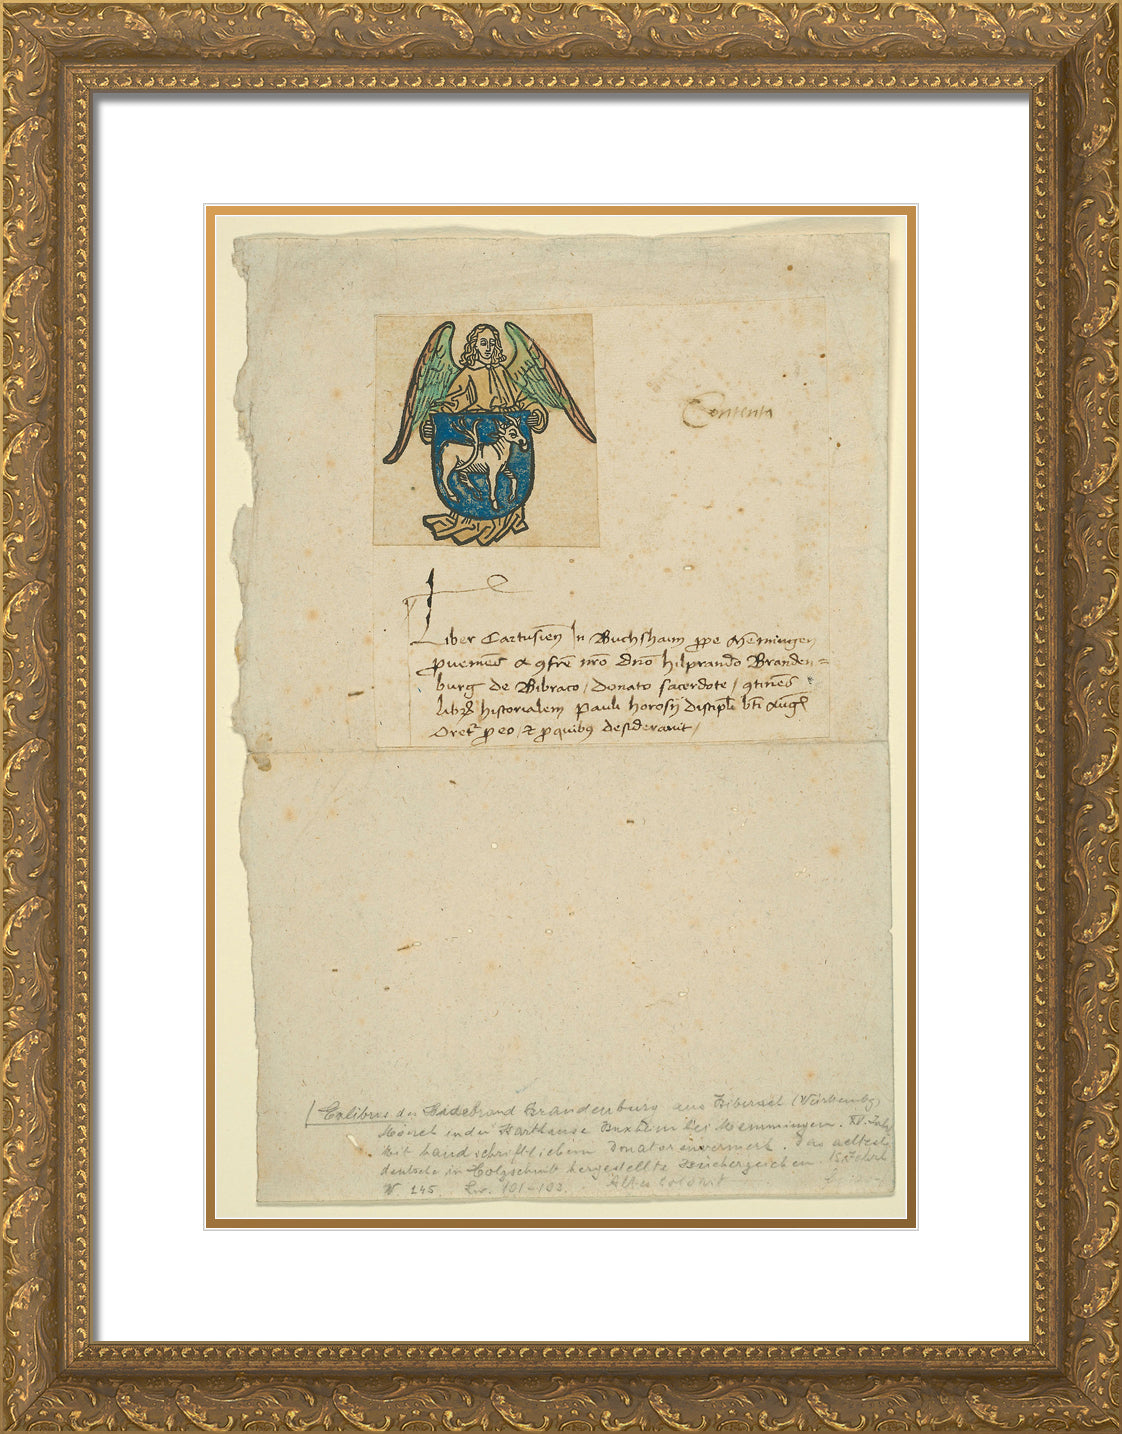 Contenta
Liber Cartusieñ In Buchshaim ꝓpe Mēmingen
ꝓueniēs a ꝯfrē nr̄o Dn̄o hilprando Branden=
burg de Bibraco / Donato sacerdote / ꝯtinēs
libꝝ historialem Pauli horosij discipli bt̄i Aug
Oret ꝓ eo / ⁊ ꝓ quibꝰ desiderauit /
Exlibris des Hildebrand Brandenburg aus Biberach (Württembg)
Mönch in der Karthause Buxheim bei Memmingen. XV. Jahr
Mit handschriftlichem Donatorenvermerk. Das aelteste
deutsche in Holzschnitt hergestellte Bücherzeichen
W 245. Lw. 101-103. Altes Colorit